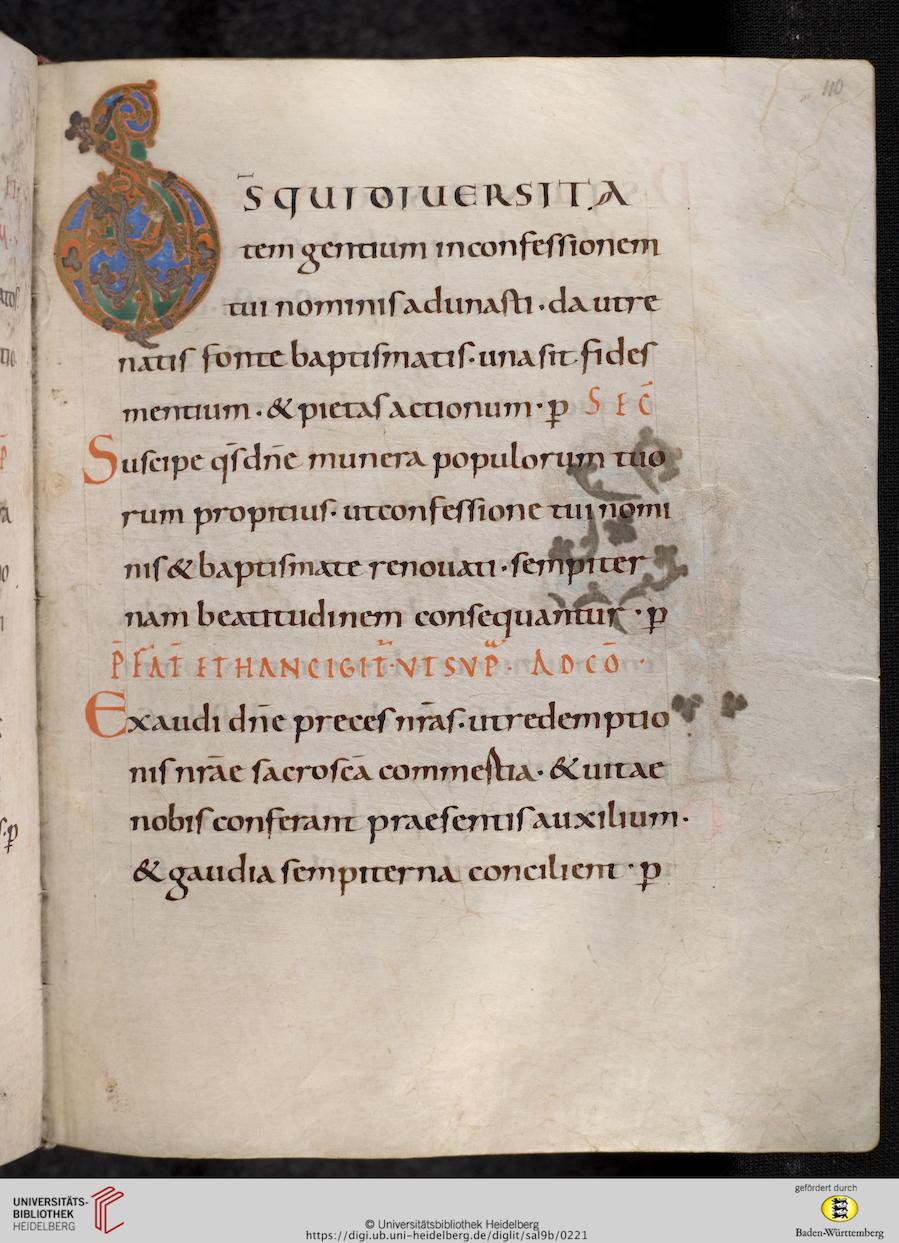 110
D̄S QUI DIUERSITA
tem gentium inconfessionem
tui nominis adunasti · da utre
natis fonte baptismatis · una sit fides
mentium · & pietas actionum · p̄ SEC̄
Suscipe q̄s dn̄e munera populorum tuo
rum propitius · utconfessione tui nomi
nis & baptismate renouati · sempiter
nam beatitudinem consequantur · p̄
P̄FAT̄ ET HANC IGIT̄ · UT SUP̄ · AD CŌ ·
Exaudi dn̄e preces nr̄as · utredemptio
nis nr̄ae sacrosc̄a commestia · & uitae
nobis conferant praesentis auxilium ·
& gaudia sempiterna concilient · p̄
UNIVERSITÄTS-
BIBLIOTHEK
HEIDELBERG
© Universitätsbibliothek Heidelberg
https://digi.ub.uni-heidelberg.de/diglit/sal9b/0221
gefördert durch
Baden-Württemberg